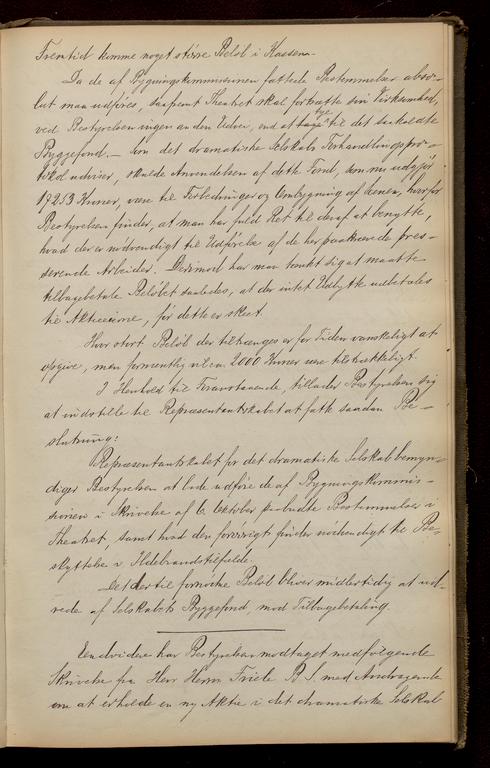 Fremtid komme noget større Beløb i Kassen.
Da de af Bygningskommissionen fattede Bestemmelser abso-
lut maa udføres, saafremt Theatret skal fortsætte sin Virksomhed,
ved Bestyrelsen ingen anden Udvei, end at tage tye til det saakaldte
Byggefond. — Som det dramatiske Selskabs Forhandlingspro-
tokol udviser, skulde Anvendelsen af dette Fond, som nu udgjør
17253 Kroner, være til Forbedringer og Ombygning af Scenen, hvorfor
Bestyrelsen finder, at man har fuld Ret til deraf at benytte,
hvad der er nødvendigt til Udførelse af de her paakrævede pres-
serende Arbeider. Derimod har man tænkt sig at maatte
tilbagebetale Beløbet saaledes, at der intet Udbytte udbetales
til Aktieeierne, før dette er skeet.
Hvor stort Beløb der tiltrænges er for Tiden vanskeligt at
opgive, men formentlig vil ca. 2000 Kroner være tilstrækkeligt.
I Henhold til Foranstaaende, tillader Bestyrelsen sig
at indstille til Repræsentantskabet at fatte saadan Be-
slutning:
Repræsentantskabet for det dramatiske Selskab bemyn-
diger Bestyrelsen at lade udføre de af Bygningskommis-
sionen i Skrivelse af 6 Oktober paabudte Bestemmelser i
Theatret, samt hvad den forøvrigt finder nødvendigt til Be-
skyttelse i Ildebrandstilfælde.
Det dertil fornødne Beløb bliver midlertidig at ud-
rede af Selskabets Byggefond, mod Tilbagebetaling.
Endvidere har Bestyrelsen modtaget medfølgende
Skrivelse fra Herr Herm Friele B. S. med Andragende
om at erholde en ny Aktie i det dramatiske Selskab